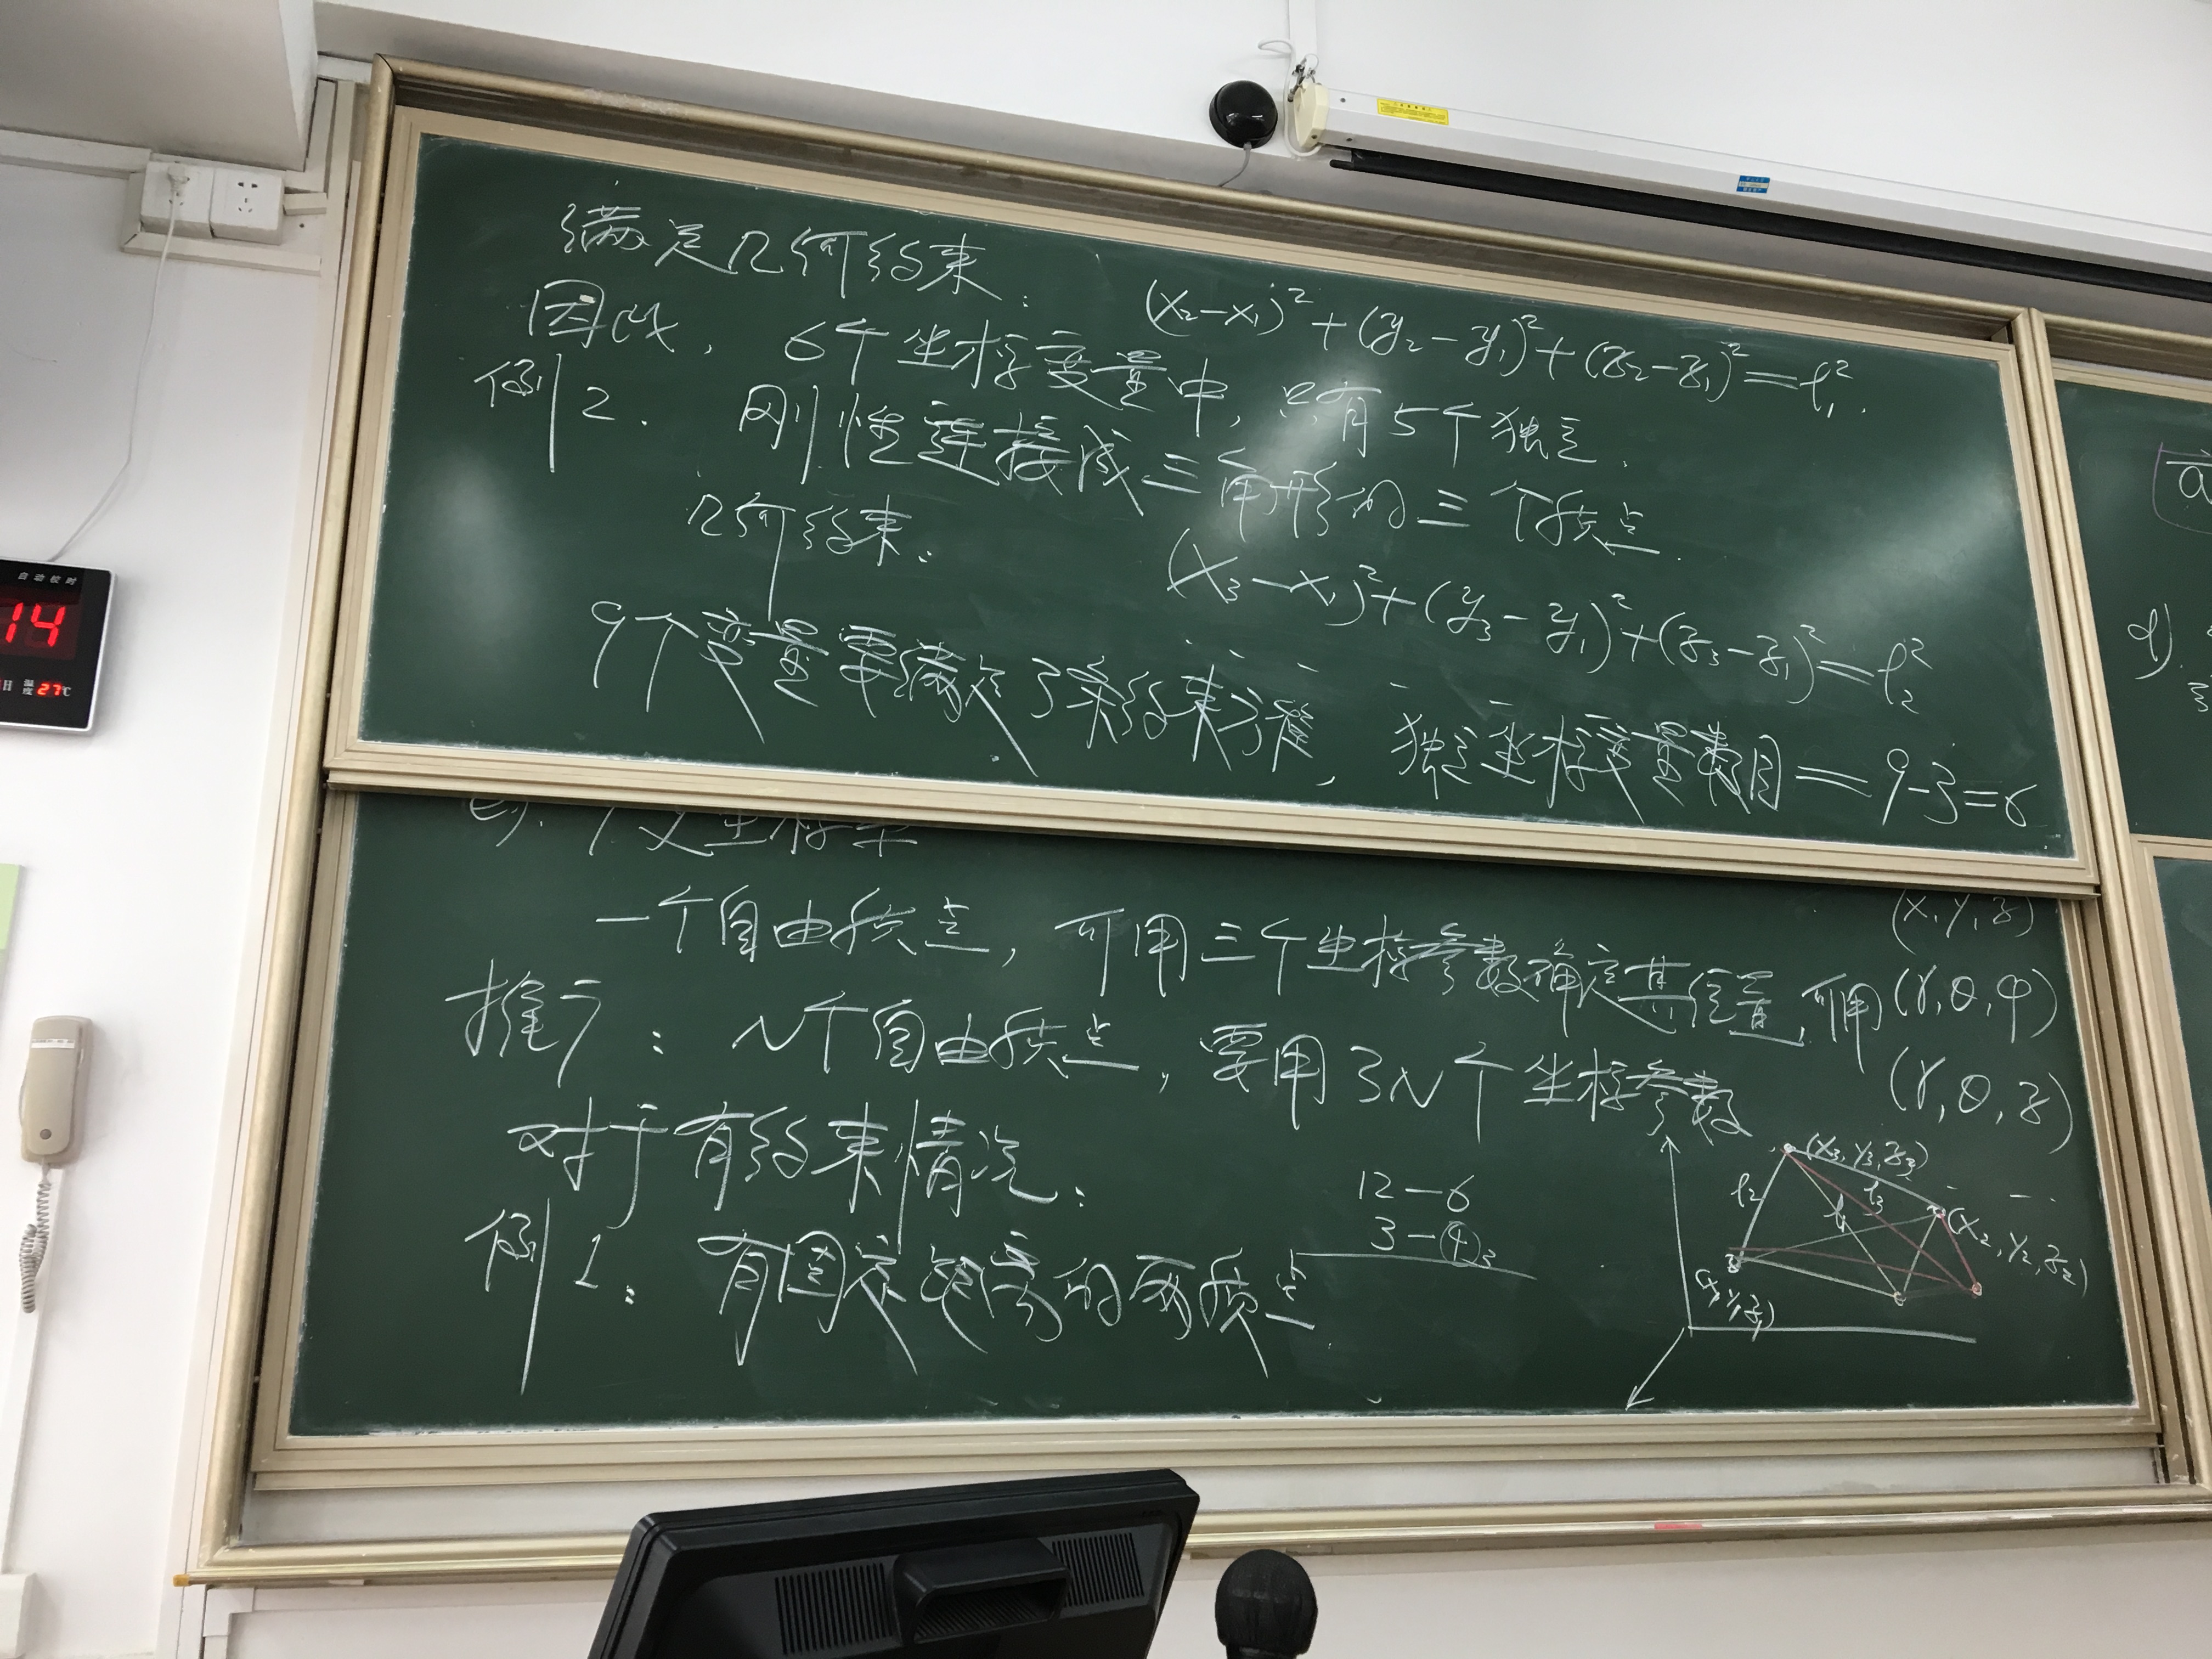 满足几何约束:
(x₂-x₁)²+(y₂-y₁)²+(z₂-z₁)²=l₁².
因此, 6个坐标变量中, 只有5个独立.
例2. 刚性连接成三角形的三个质点.
几何约束:
(x₃-x₁)²+(y₃-y₁)²+(z₃-z₁)²=l₂²
9个变量要满足3条约束方程, 独立坐标变量数目=9-3=6
(x,y,z)
一个自由质点, 可用三个坐标参数确定其位置, 可用(r,θ,φ)
(r,θ,z)
推广: N个自由质点, 要用3N个坐标参数
对于有约束情况:
12-6
3-4 3
例1: 有固定距离的两质点
(x₃,y₃,z₃)
l₂
l₃
l₁
(x₂,y₂,z₂)
(x₁,y₁,z₁)
a
d)
自动校时
14
日 温度 27℃